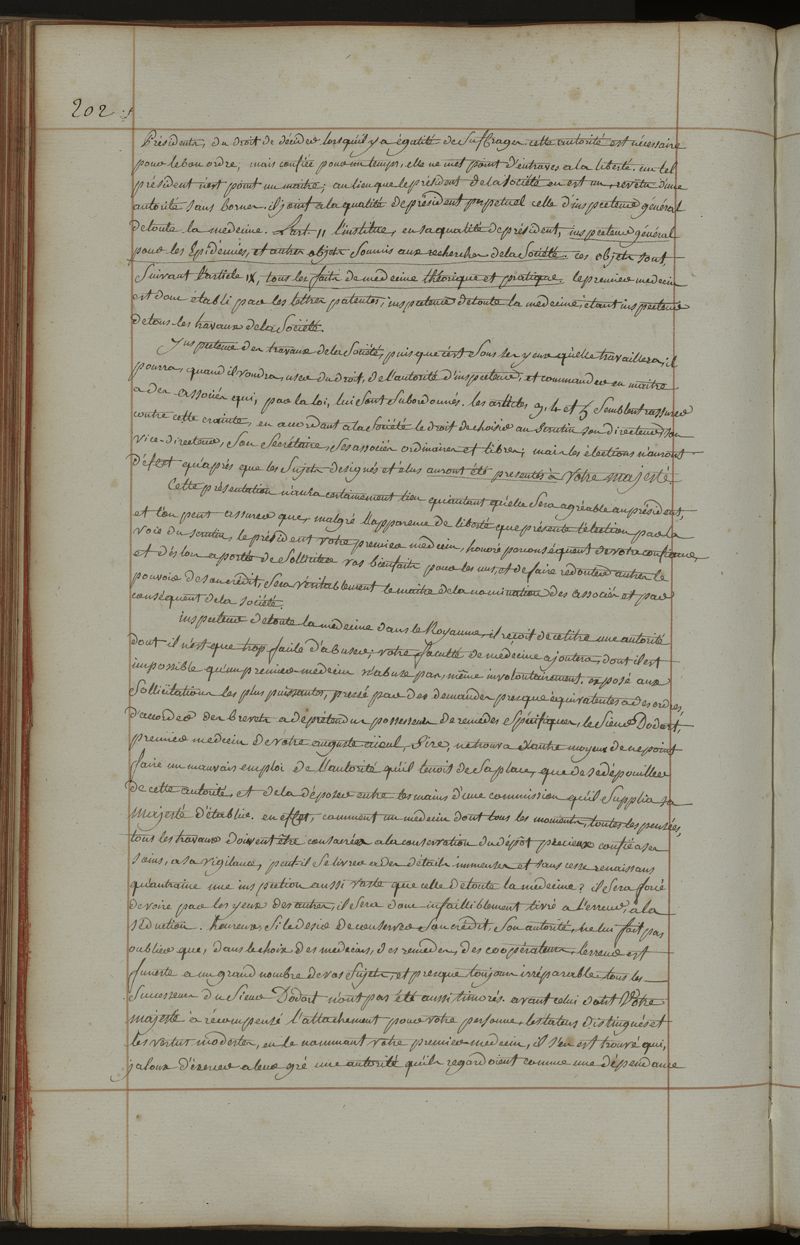 202
Présidents, du droit de décider lorsqu'il y a égalité de suffrages. cette autorité est nécessaire
pour le bon ordre, mais confiée pour un temps, elle ne met point d'entraves a la liberté. un tel
président n'est point un maitre; au lieu que le président de la Société en est un, revetu d'une
autorité sans bornes. il joint a la qualité de président perpetuel celle d'inspecteur général
de toute la medecine. L'art 11 l'institue, en sa qualité de président, inspecteur général
pour les Epidémies, et autres objets soumis aux recherches de la Société. ces objets sont
Suivant l'article IX, tous les faits de medecine théorique et pratique, le premier medecin
est donc établi par les lettres patentes, inspecteur de toute la medecine, étant inspecteur
de tous les travaux de la Société.
Inspecteur des travaux de la Société, puisque c'est sous ses yeux qu'elle travaillera, il
pourra, quand il voudra, user du droit, de l'autorité d'inspecteur, et commander en maitre
a des associés qui, par la loi, lui sont subordonnés. les articles 3, 4 et 5 semblent rassurer
contre cette crainte, en accordant a la Société le droit de choisir au scrutin son directeur, son
vice-directeur, son Secrétaire, ses associés ordinaires et libres; mais les élections n'auront
d'effet qu'après que les Sujets designés et élus auront été presentés à votre majesté
Cette présentation n'aura certainement lieu qu'autant qu'elle sera agréable au président,
et l'on peut assurer que, malgré l'apparence de liberté que présente l'élection par la
voie du scrutin, le président votre premier médecin, honoré par conséquent de votre confiance,
et dès lors a portée de solliciter vos bienfaits pour les uns, et de faire redouter aux autres le
pouvoir de son crédit, sera véritablement le maitre de la nomination des associés et par
conséquent de la société.
Inspecteur de toute la médecine dans le Royaume, il reçoit de ce titre une autorité
dont il n'est que trop facile d'abuser; votre faculté de medecine ajoutera, dont il est
impossible qu'un premier medecin n'abuse pas, même involontairement. exposé aux
sollicitations les plus puissantes, pressé par des demandes presque équivalentes a des ordres,
d'accorder des brevets a de prétendus possesseurs de remedes spécifiques, le Sieur Dodart,
premier medecin de votre auguste aieul, Sire, ne trouva d'autre moyen de ne point
faire un mauvais emploi de l'autorité qu'il tenoit de sa place, que de se dépouiller
de cette autorité, et de la déposer entre les mains d'une commission qu'il supplia sa
majesté d'établir. en effet, comment un médecin dont tous les momens, toutes les pensées,
tous les travaux doivent être consacrés a la conservation du dépôt précieux confié a ses
soins, a sa vigilance, peut-il se livrer a des détails immenses et sans cesse renaissans
qu'entraine une inspection aussi vaste que celle de toute la medecine? il sera forcé
de voir par les yeux des autres, il sera donc infailliblement livré a l'erreur, a la
séduction. heureux, si le desir de conserver son crédit, son autorité, ne lui fait pas
oublier que, dans le choix des medecins, des remedes, des coopérateurs, l'erreur est
funeste a un grand nombre de vos sujets, et presque toujours irréparable. tous les
successeurs du Sieur Dodart n'ont pas été aussi timorés. avant celui dont Votre
majesté a récompensé l'attachement pour votre personne, les talens distingués et
les vertus modestes, en le nommant votre premier medecin, il s'en est trouvé qui,
jaloux d'exercer a leur gré une autorité qu'ils regardoient comme une dépendance